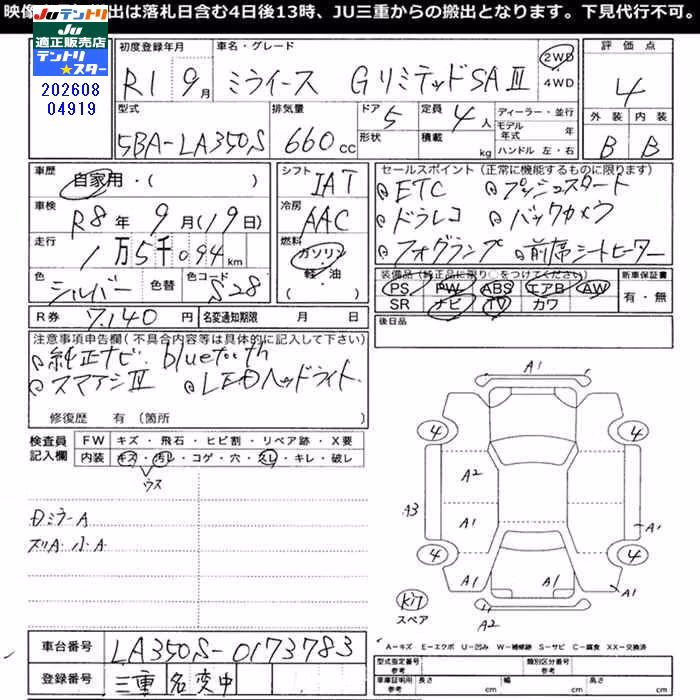 映像 出は落札日含む4日後13時、JU三重からの搬出となります。下見代行不可。
JUテントリ
JU適正販売店
テントリ★スター
202608
04919
初度登録年月
R1 9月
車名・グレード
ミライース GリミテッドSAⅢ
2WD
4WD
評価点
4
型式
5BA-LA350S
排気量
660cc
ドア
5
形状
定員
4人
積載
kg
ディーラー・並行
モデル年式 年
ハンドル 左・右
外装 内装
B B
車歴
自家用・( )
車検
R8年 9月(19日)
走行
1万5千094km
色
シルバー
色替
色コード
S28
シフト
IAT
冷房
AAC
燃料
ガソリン
軽・油
( )
セールスポイント(正常に機能するものに限ります)
ETC プッシュスタート
ドラレコ バックカメラ
フォグランプ 前席シートヒーター
装備品(純正品に限り○をつけてください)
PS PW ABS エアB AW
SR ナビ TV カワ
新車保証書
有・無
R券 7,140円
名変通知期限 月 日
後日品
注意事項申告欄(不具合内容等は具体的に記入して下さい)
純正ナビ. bluetooth
スマアシⅢ LEDヘッドライト.
修復歴 有(箇所 )
検査員記入欄
FW キズ・飛石・ヒビ割・リペア跡・X要
内装 キズ・汚レ・コゲ・穴・スレ・キレ・破レ
ウス
Dミラー A
ズリA 小A
A1
4 4
A2
A3
A1
A1
4 4
A1 A1
A1
A2
スペア
A-キズ E-エクボ U-凹み W-補修跡 S-サビ C-腐食 XX-交換済
車台番号 LA350S-0173783
登録番号 三重 名変中
型式指定番号
参考
類別区分番号
参考
車庫証明用
参考
長さ cm
幅 cm
高さ cm